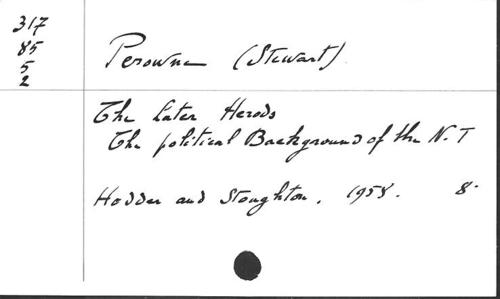 317
85
5
2
Perowne (Stewart)
The Later Herods
The political Background of the N.T
Hodder and Stoughton, 1958. 8°